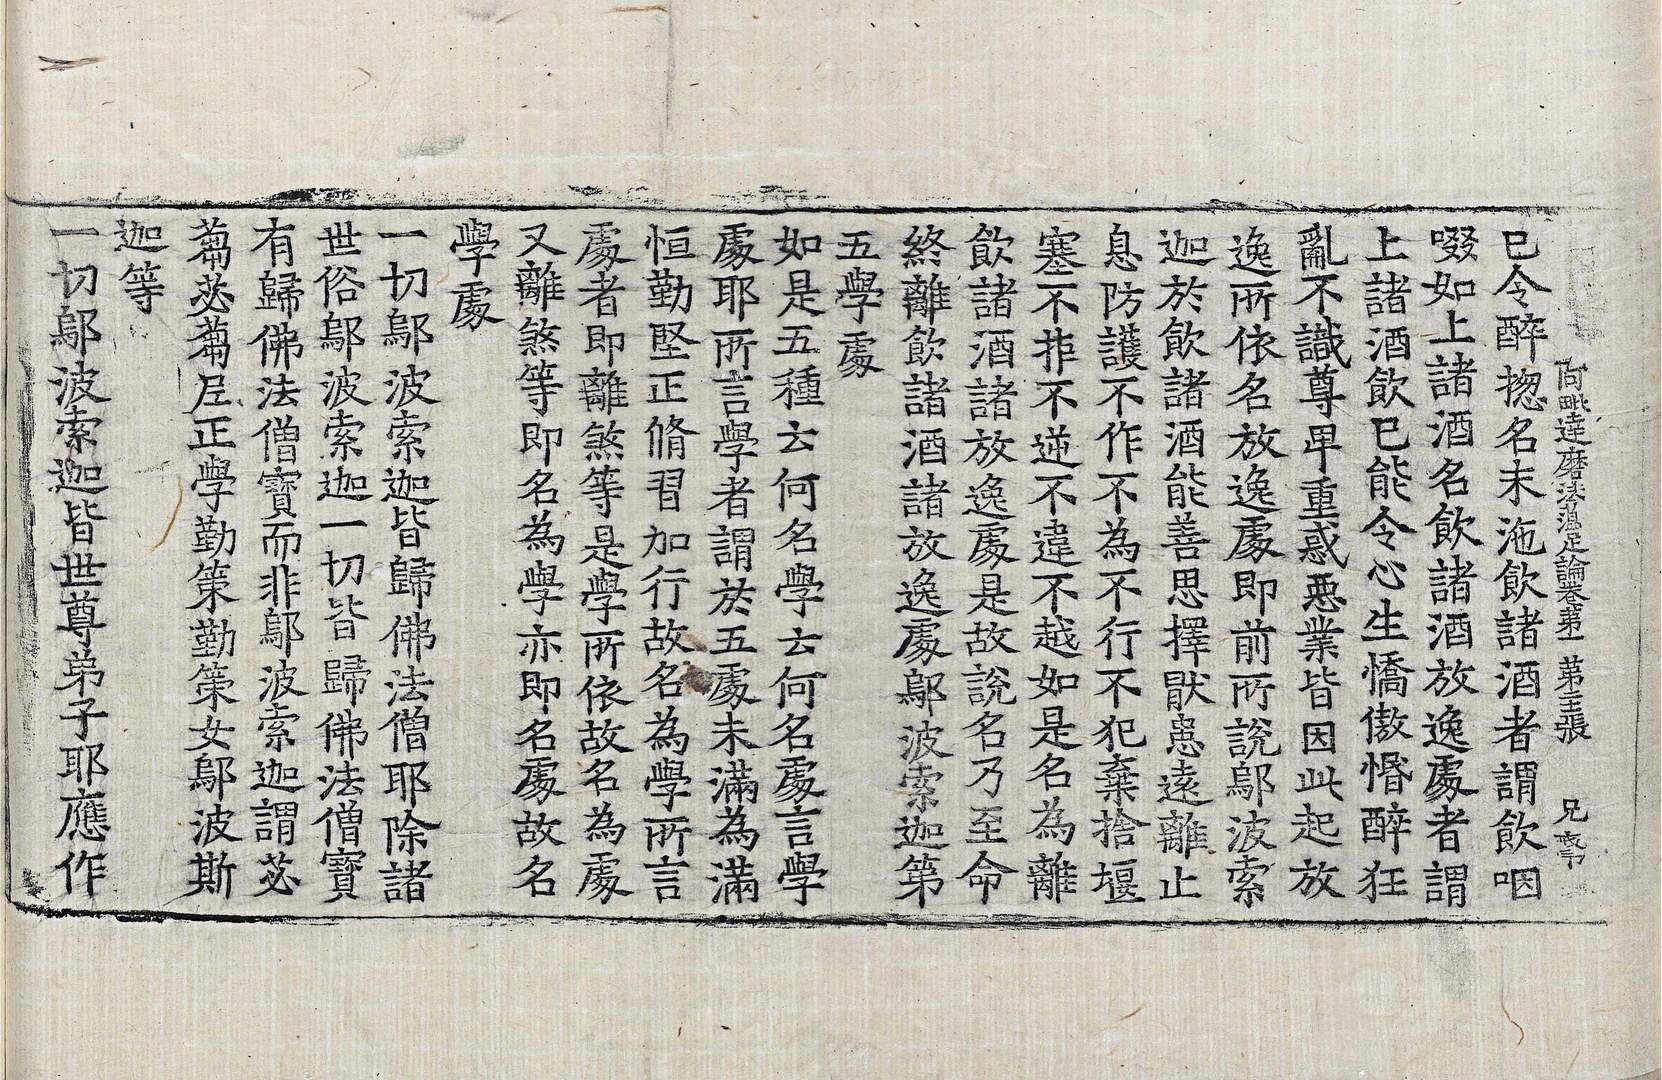 阿毗達磨法蘊足論卷第一 第主張 兄
已令醉揔名末沲飲諸酒者謂飲咽
啜如上諸酒名飲諸酒放逸處者謂
上諸酒飲已能令心生憍傲惛醉狂
亂不識尊卑重惑惡業皆因此起放
逸所依名放逸處即前所說鄔波索
迦於飲諸酒能善思擇猒患遠離止
息防護不作不為不行不犯棄捨堰
塞不拒不逆不違不越如是名為離
飲諸酒諸放逸處是故說名乃至命
終離飲諸酒諸放逸處鄔波索迦第
五學處
如是五種云何名學云何名處言學
處耶所言學者謂於五處未滿為滿
恒勤堅正脩習加行故名為學所言
處者即離煞等是學所依故名為處
又離煞等即名為學亦即名處故名
學處
一切鄔波索迦皆歸佛法僧耶除諸
世俗鄔波索迦一切皆歸佛法僧寶
有歸佛法僧寶而非鄔波索迦謂苾
蒭苾蒭尼正學勤策勤策女鄔波斯
迦等
一切鄔波索迦皆世尊弟子耶應作